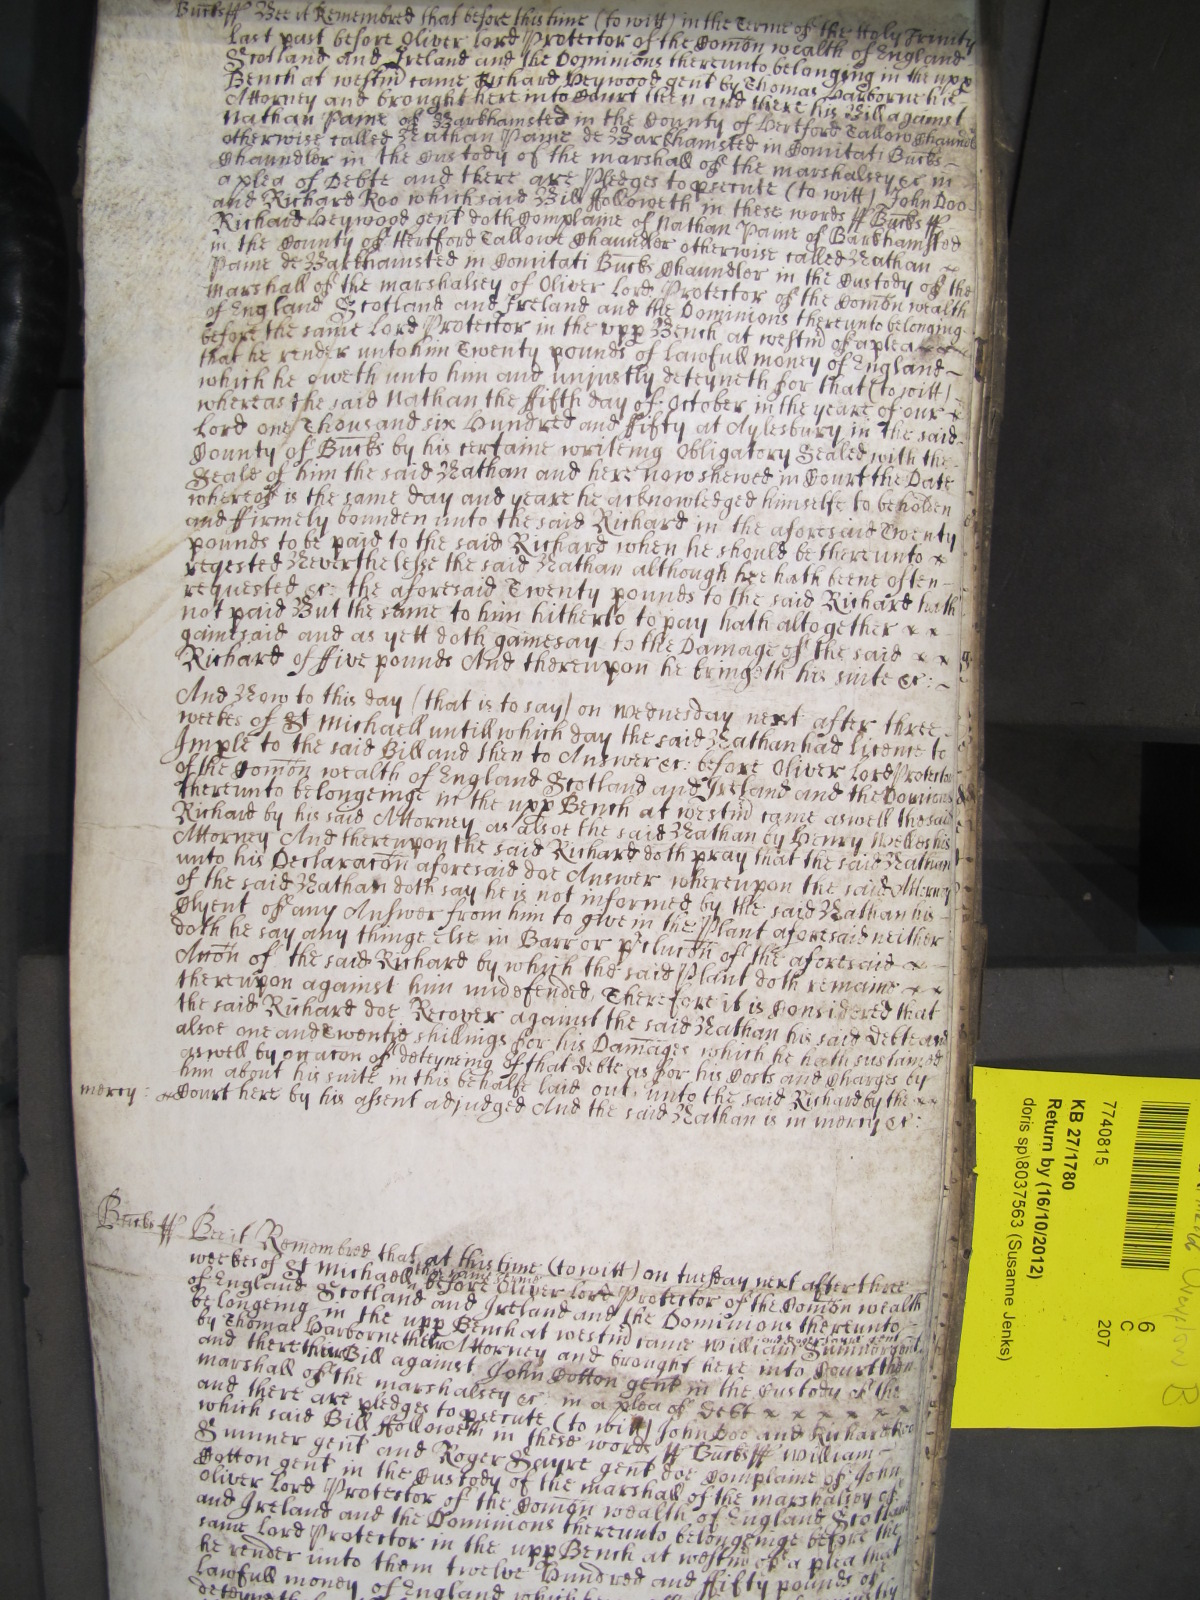 Bucks ff Bee it Remembred that before this time (to witt) in the Terme of the Holy Trinity
last past before Oliver Lord Protector of the Comon wealth of England
Scotland and Ireland and the Dominions thereunto belonging in the upp
Bench at westm came Richard Heywood gent by Thomas Harborne his
Attorney and brought here into Court then and there his Bill against
Nathan Pame of Barkhamsted in the County of Hertford Tallow Chaundl
otherwise called Nathan Pame de Barkhamsted in Comitati Bucks
Chaundler in the Custody of the marshall of the marshalsey &c in
a plea of Debte and there are Pledges to psecute (to witt) John Doo
and Richard Roo which said Bill ffolloweth in these words ff Bucks ff
Richard Heywood gent doth Complaine of Nathan Pame of Barkhamsted
in the County of Hertford Tallowe Chaundler otherwise called Nathan
Pame de Barkhamsted in Comitati Bucks Chaundler in the Custody of the
marshall of the marshalsey of Oliver Lord Protector of the Comon wealth
of England Scotland and Ireland and the Dominions thereunto belonging
before the same Lord Protector in the upp Bench at westm of a plea
that he render unto him Twenty pounds of lawfull money of England
which he oweth unto him and unjustly deteyneth for that (to witt)
whereas the said Nathan the ffifth day of October in the yeare of our
Lord one Thousand six Hundred and ffifty at Aylesbury in the said
County of Bucks by his certaine writeing Obligatory Sealed with the
Seale of him the said Nathan and here now shewed in Court the Date
whereof is the same day and yeare he acknowledged himselfe to beholden
and ffirmely bounden unto the said Richard in the aforesaid Twenty
pounds to be paid to the said Richard when he should be thereunto
reqested Neverthelesse the said Nathan although hee hath beene often
requested &c: the aforesaid Twenty pounds to the said Richard hath
not paid But the same to him hitherto to pay hath altogether
gainesaid and as yett doth gainesay to the Damage of the said
Richard of ffive pounds And thereupon he bringeth his suite &c:
And Now to this day (that is to say) on wednesday next after three
weekes of St Michaell untill which day the said Nathan had licence to
Imple to the said Bill and then to Answer &c: before Oliver Lord Protector
of the Comon wealth of England Scotland and Ireland and the Dominions
thereunto belongeinge in the upp Bench at westm came aswell the said
Richard by his said Attorney as alsoe the said Nathan by Henry Welles his
Attorney And thereupon the said Richard doth pray that the said Nathan
unto his Declaracon aforesaid doe Answer whereupon the said Attorney
of the said Nathan doth say he is not informed by the said Nathan his
Clyent of any Answer from him to give in the Plaint aforesaid neither
doth he say any thinge else in Barr or pclucon of the aforesaid
Accon of the said Richard by which the said Plaint doth remaine
thereupon against him undefended, Therefore it is Considered that
the said Richard doe Recover against the said Nathan his said Debte and
alsoe one and Twentie shillings for his Damages which he hath sustained
aswell by occacon of deteyneing of that debte as for his Costs and Charges by
him about his suite in this behalfe laid out, unto the said Richard by the
mercy: Court here by his assent adjudged And the said Nathan is in mercy &c:
Bucks ff Bee it Remembred that at this time (to witt) on tuesday next after three
weekes of St Michaell before Oliver Lord Protector of the Comon wealth
of England Scotland and Ireland and the Dominions thereunto
belongeing in the upp Bench at westm came William Sumner gent
and Roger Sayre gent
by Thomas Harborne their Attorney and brought here into Court then
and there their Bill against John Cotton gent in the Custody of the
marshall of the marshalsey &c: in a plea of Debt
and there are pledges to psecute (to witt) John Doo and Richard Roo
which said Bill ffolloweth in these words ff Bucks ff William
Sumner gent and Roger Sayre gent doe Complaine of John
Cotton gent in the Custody of the marshall of the marshalsey of
Oliver Lord Protector of the Comon wealth of England Scotland
and Ireland and the Dominions thereunto belongeinge before the
same Lord Protector in the upp Bench at westm of a plea that
he render unto them twelve Hundred and ffifty pounds of
lawfull money of England which
7740815
KB 27/1780
Return by (16/10/2012)
doris sp\8037563 (Susanne Jenks)
6
C
207